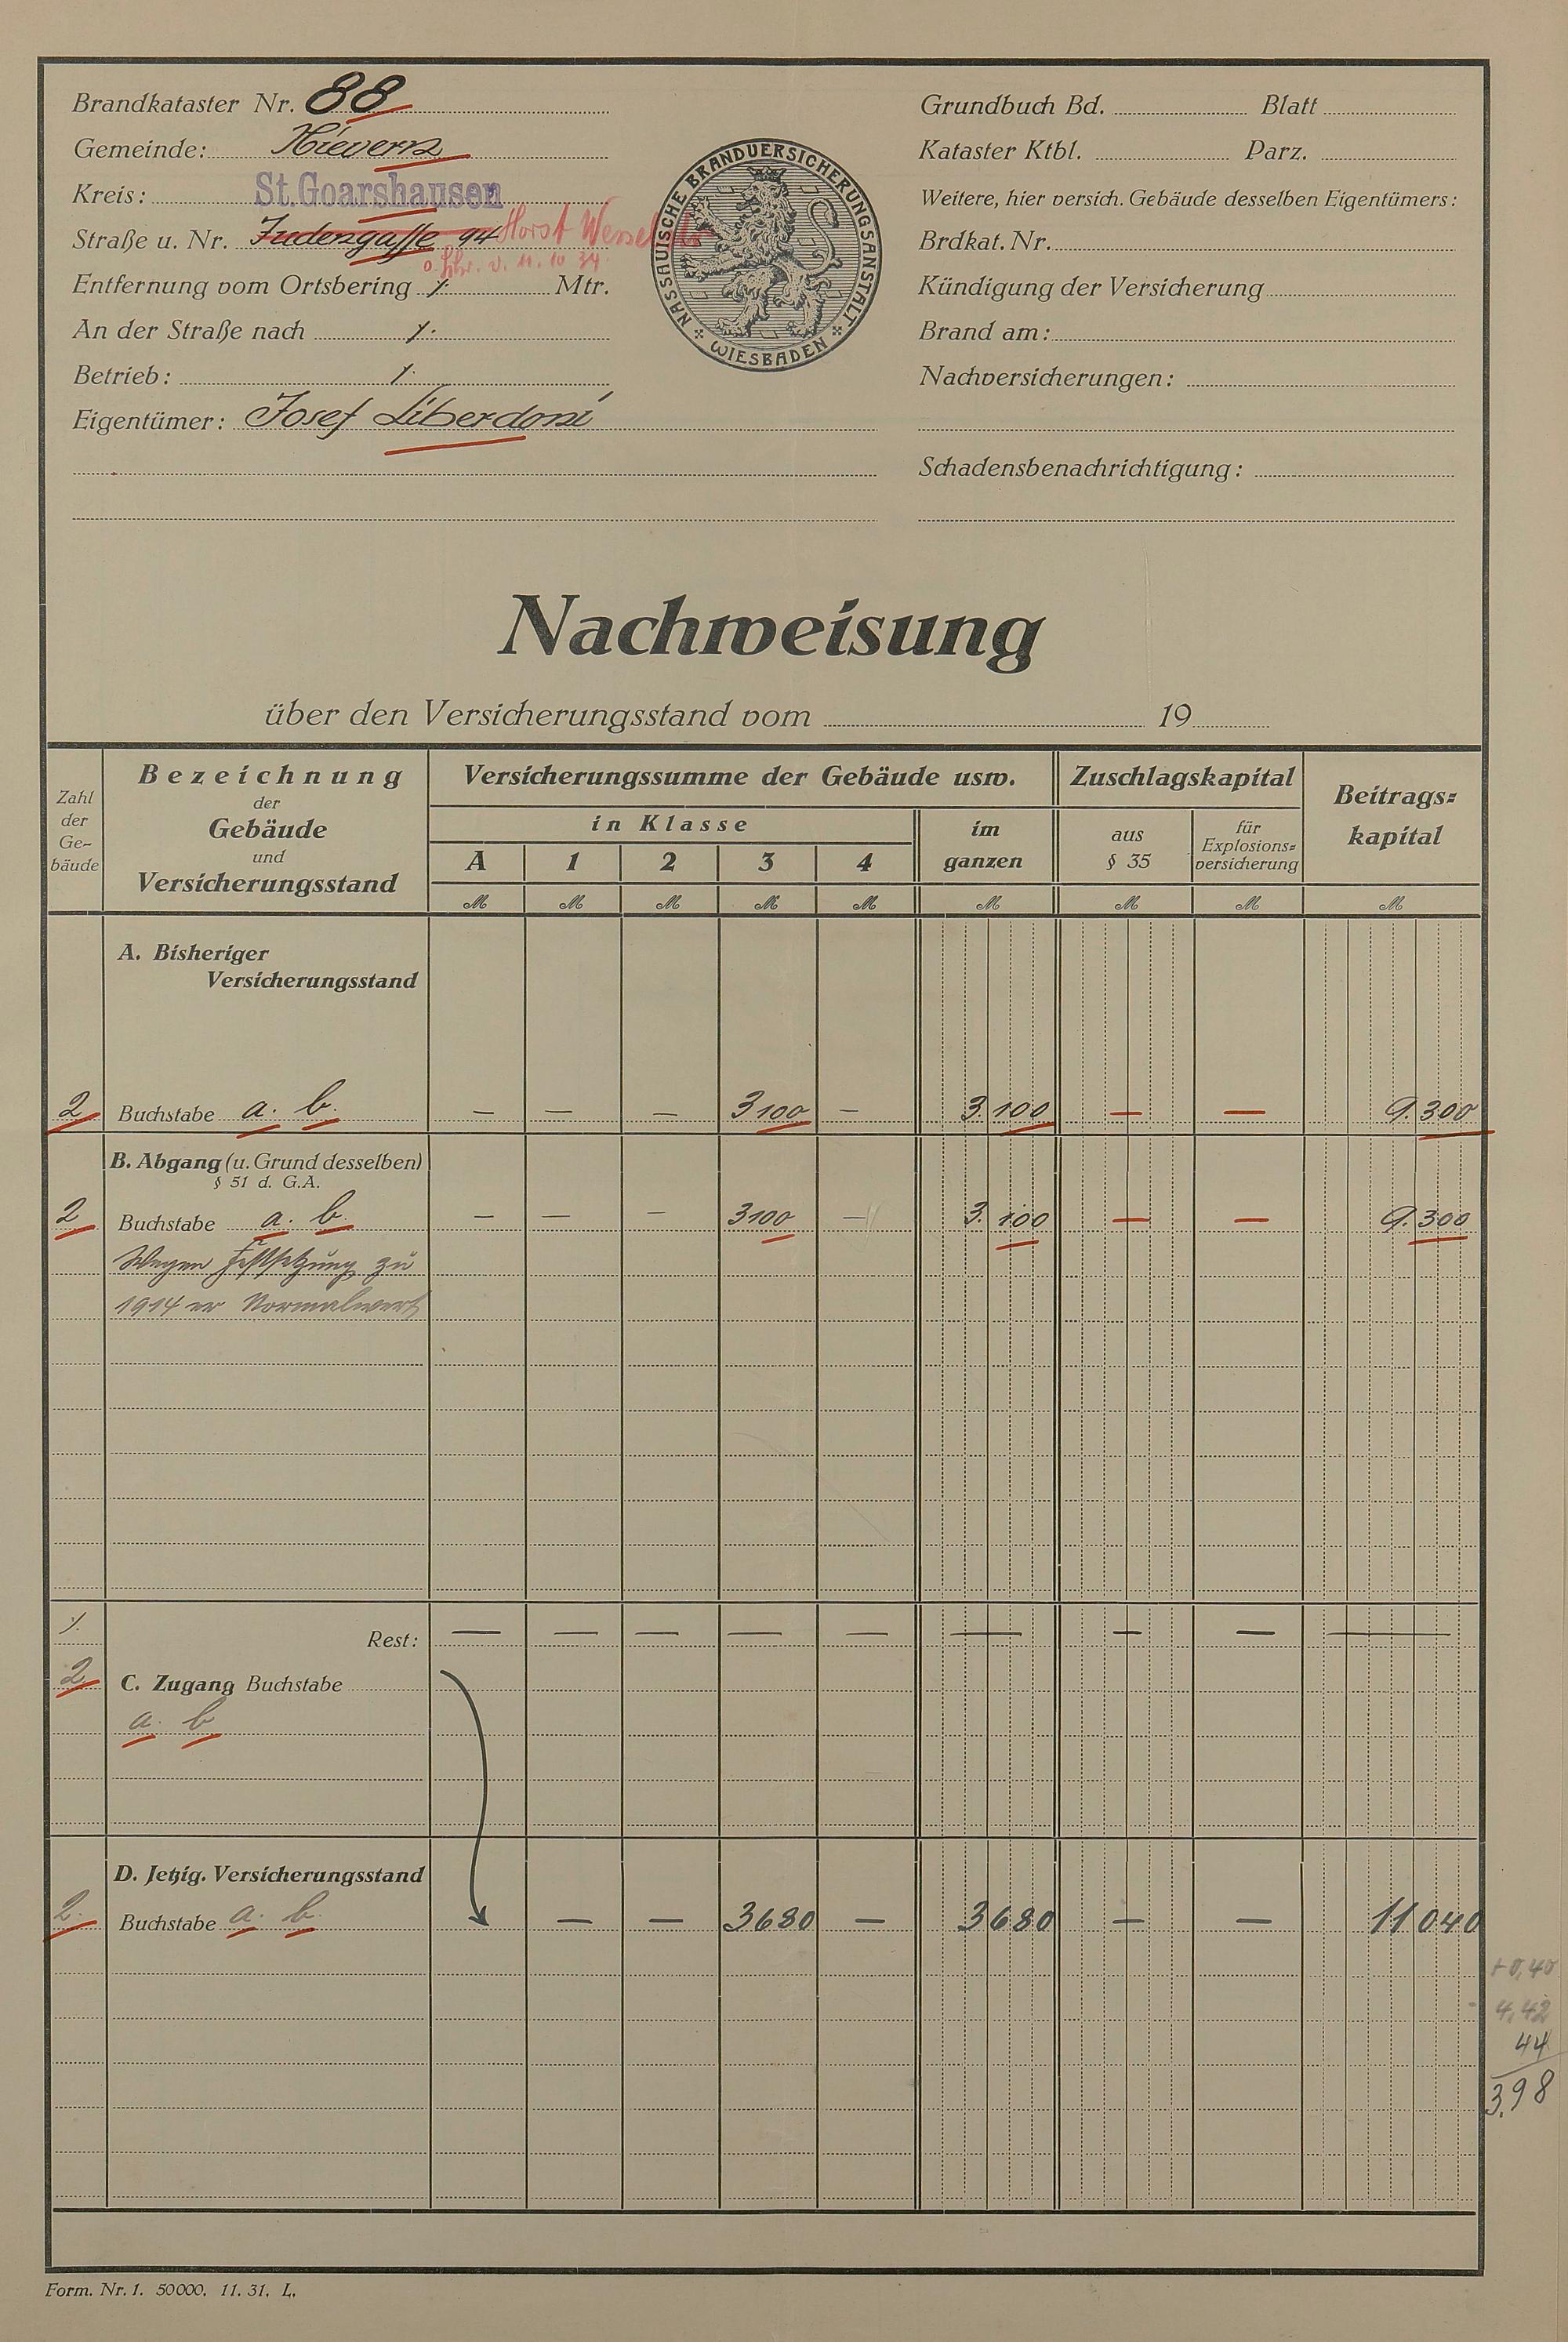 Brandkataster Nr. 88
Gemeinde: Nievern
Kreis: St. Goarshausen
Straße u. Nr. Judengasse 94 Horst Wessel
v. 11. 10 34.
Entfernung vom Ortsbering ⁒ Mtr.
An der Straße nach ⁒
Betrieb: ⁒
Eigentümer: Josef Liberdoni
NASSAUISCHE BRANDVERSICHERUNGSANSTALT
* WIESBADEN *
Grundbuch Bd. Blatt
Kataster Ktbl. Parz.
Weitere, hier versich. Gebäude desselben Eigentümers:
Brdkat. Nr.
Kündigung der Versicherung
Brand am:
Nachversicherungen:
Schadensbenachrichtigung:
Nachweisung
über den Versicherungsstand vom 19
Zahl der Ge-bäude
Bezeichnung der Gebäude und Versicherungsstand
Versicherungssumme der Gebäude usw.
in Klasse
A 1 2 3 4
im ganzen
Zuschlagskapital
aus § 35
für Explosions=versicherung
Beitrags=kapital
M M M M M M M M M
A. Bisheriger
Versicherungsstand
2 Buchstabe a. b. — — — 3100 — 3.100 — — 9.300
B. Abgang (u. Grund desselben)
§ 51 d. G.A.
2 Buchstabe a. b. — — — 3100 — 3.100 — — 9.300
Wegen Festsetzung zu
1914 er Normalwert
⁒ Rest: — — — — — — — — —
2 C. Zugang Buchstabe
a. b
D. Jetzig. Versicherungsstand
2. Buchstabe a. b. — — 3680 — 3680 — — 11040
+0,40
4,42
44
3,98
Form. Nr. 1. 50000. 11. 31. L.